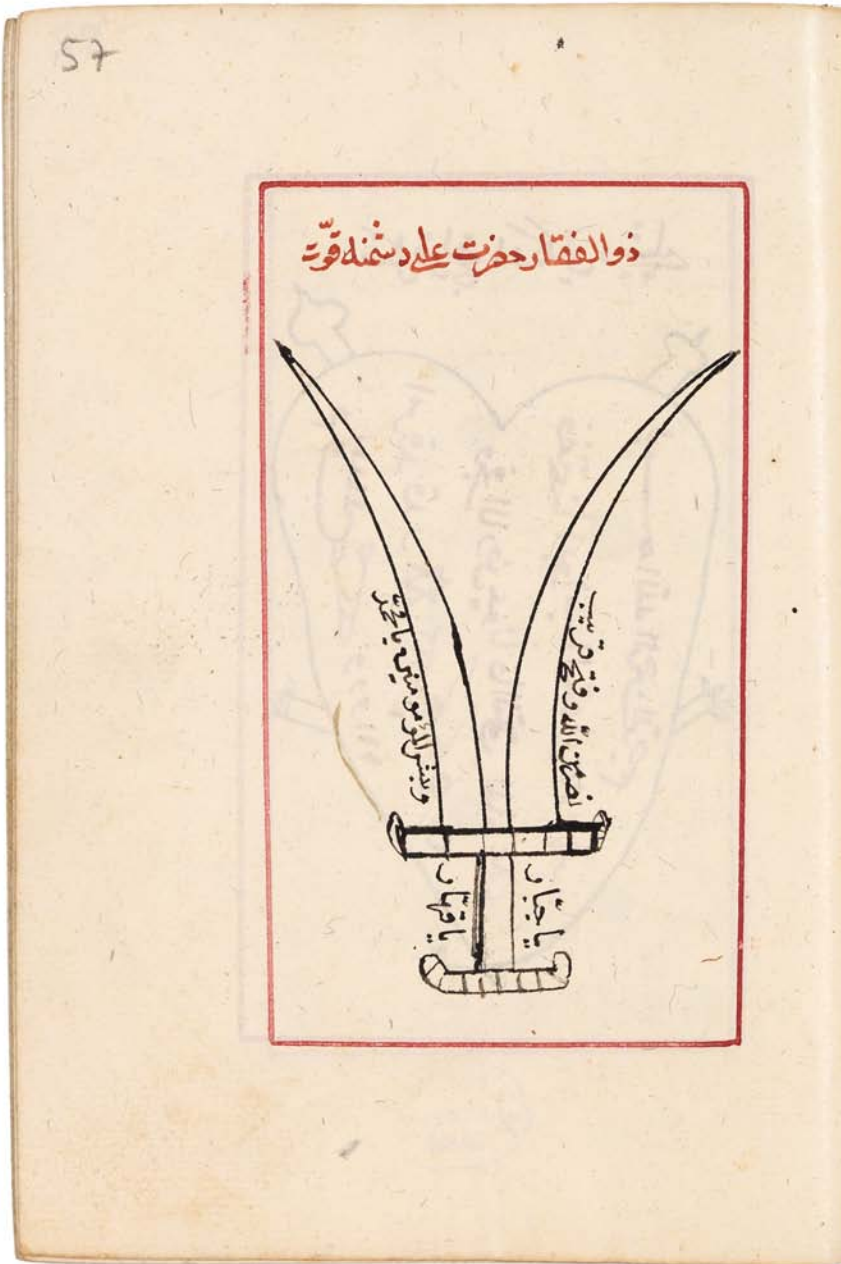 57
ذوالفقار حضرت علی دشمنه قوت
نصر من الله وفتح قریب
وبشر المؤمومنین یا محمد
یا جبار
یا قهار